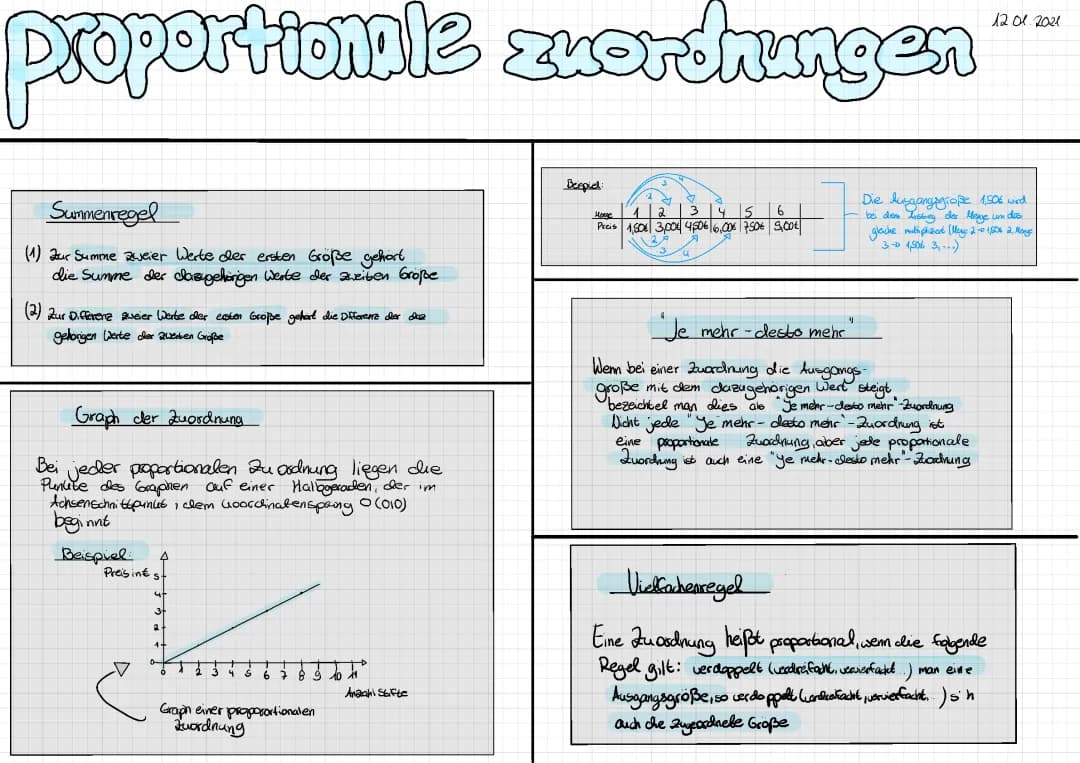 proportionale zuordnungen
12.01.2021
Summenregel
(1) Zur Summe zweier Werte der ersten Größe gehört
die Summe der dazugehörigen Werte der zweiten Größe
(2) Zur Differenz zweier Werte der ersten Größe gehört die Differenz der dazu
gehörigen Werte der zweiten Größe
Graph der Zuordnung
Bei jeder proportionalen Zuordnung liegen die
Punkte des Graphen auf einer Halbgeraden, der im
Achsenschnittpunkt, dem Koordinatensprung O (0|0)
beginnt
Beispiel:
Preis in €
5
4
3
2
1
0
0 1 2 3 4 5 6 7 8 9 10 11
Anzahl Stifte
Graph einer proporortionalen
Zuordnung
Beispiel:
2 3 4
Menge 1 2 3 4 5 6
Preis 1,50€ 3,00€ 4,50€ 6,00€ 7,50€ 9,00€
2 3 4
Die Ausgangsgröße 1,50€ wird
bei dem Anstieg der Menge um das
gleiche multipliziert (Menge 2 → 1,50€ · 2, Menge
3 → 1,50€ · 3, ...)
"Je mehr - desto mehr"
Wenn bei einer Zuordnung die Ausgangs-
größe mit dem dazugehörigen Wert steigt
bezeichtet man dies als "Je mehr - desto mehr"-Zuordnung
Nicht jede "Je mehr - desto mehr"-Zuordnung ist
eine proportionale Zuordnung, aber jede proportionale
Zuordnung ist auch eine "Je mehr-desto mehr"-Zuordnung
Vielfachenregel
Eine Zuordnung heißt proportional, wenn die folgende
Regel gilt: verdoppelt (verdreifacht, vervierfacht...) man eine
Ausgangsgröße, so verdoppelt (verdreifacht, vervierfacht...) sich
auch die zugeordnete Größe